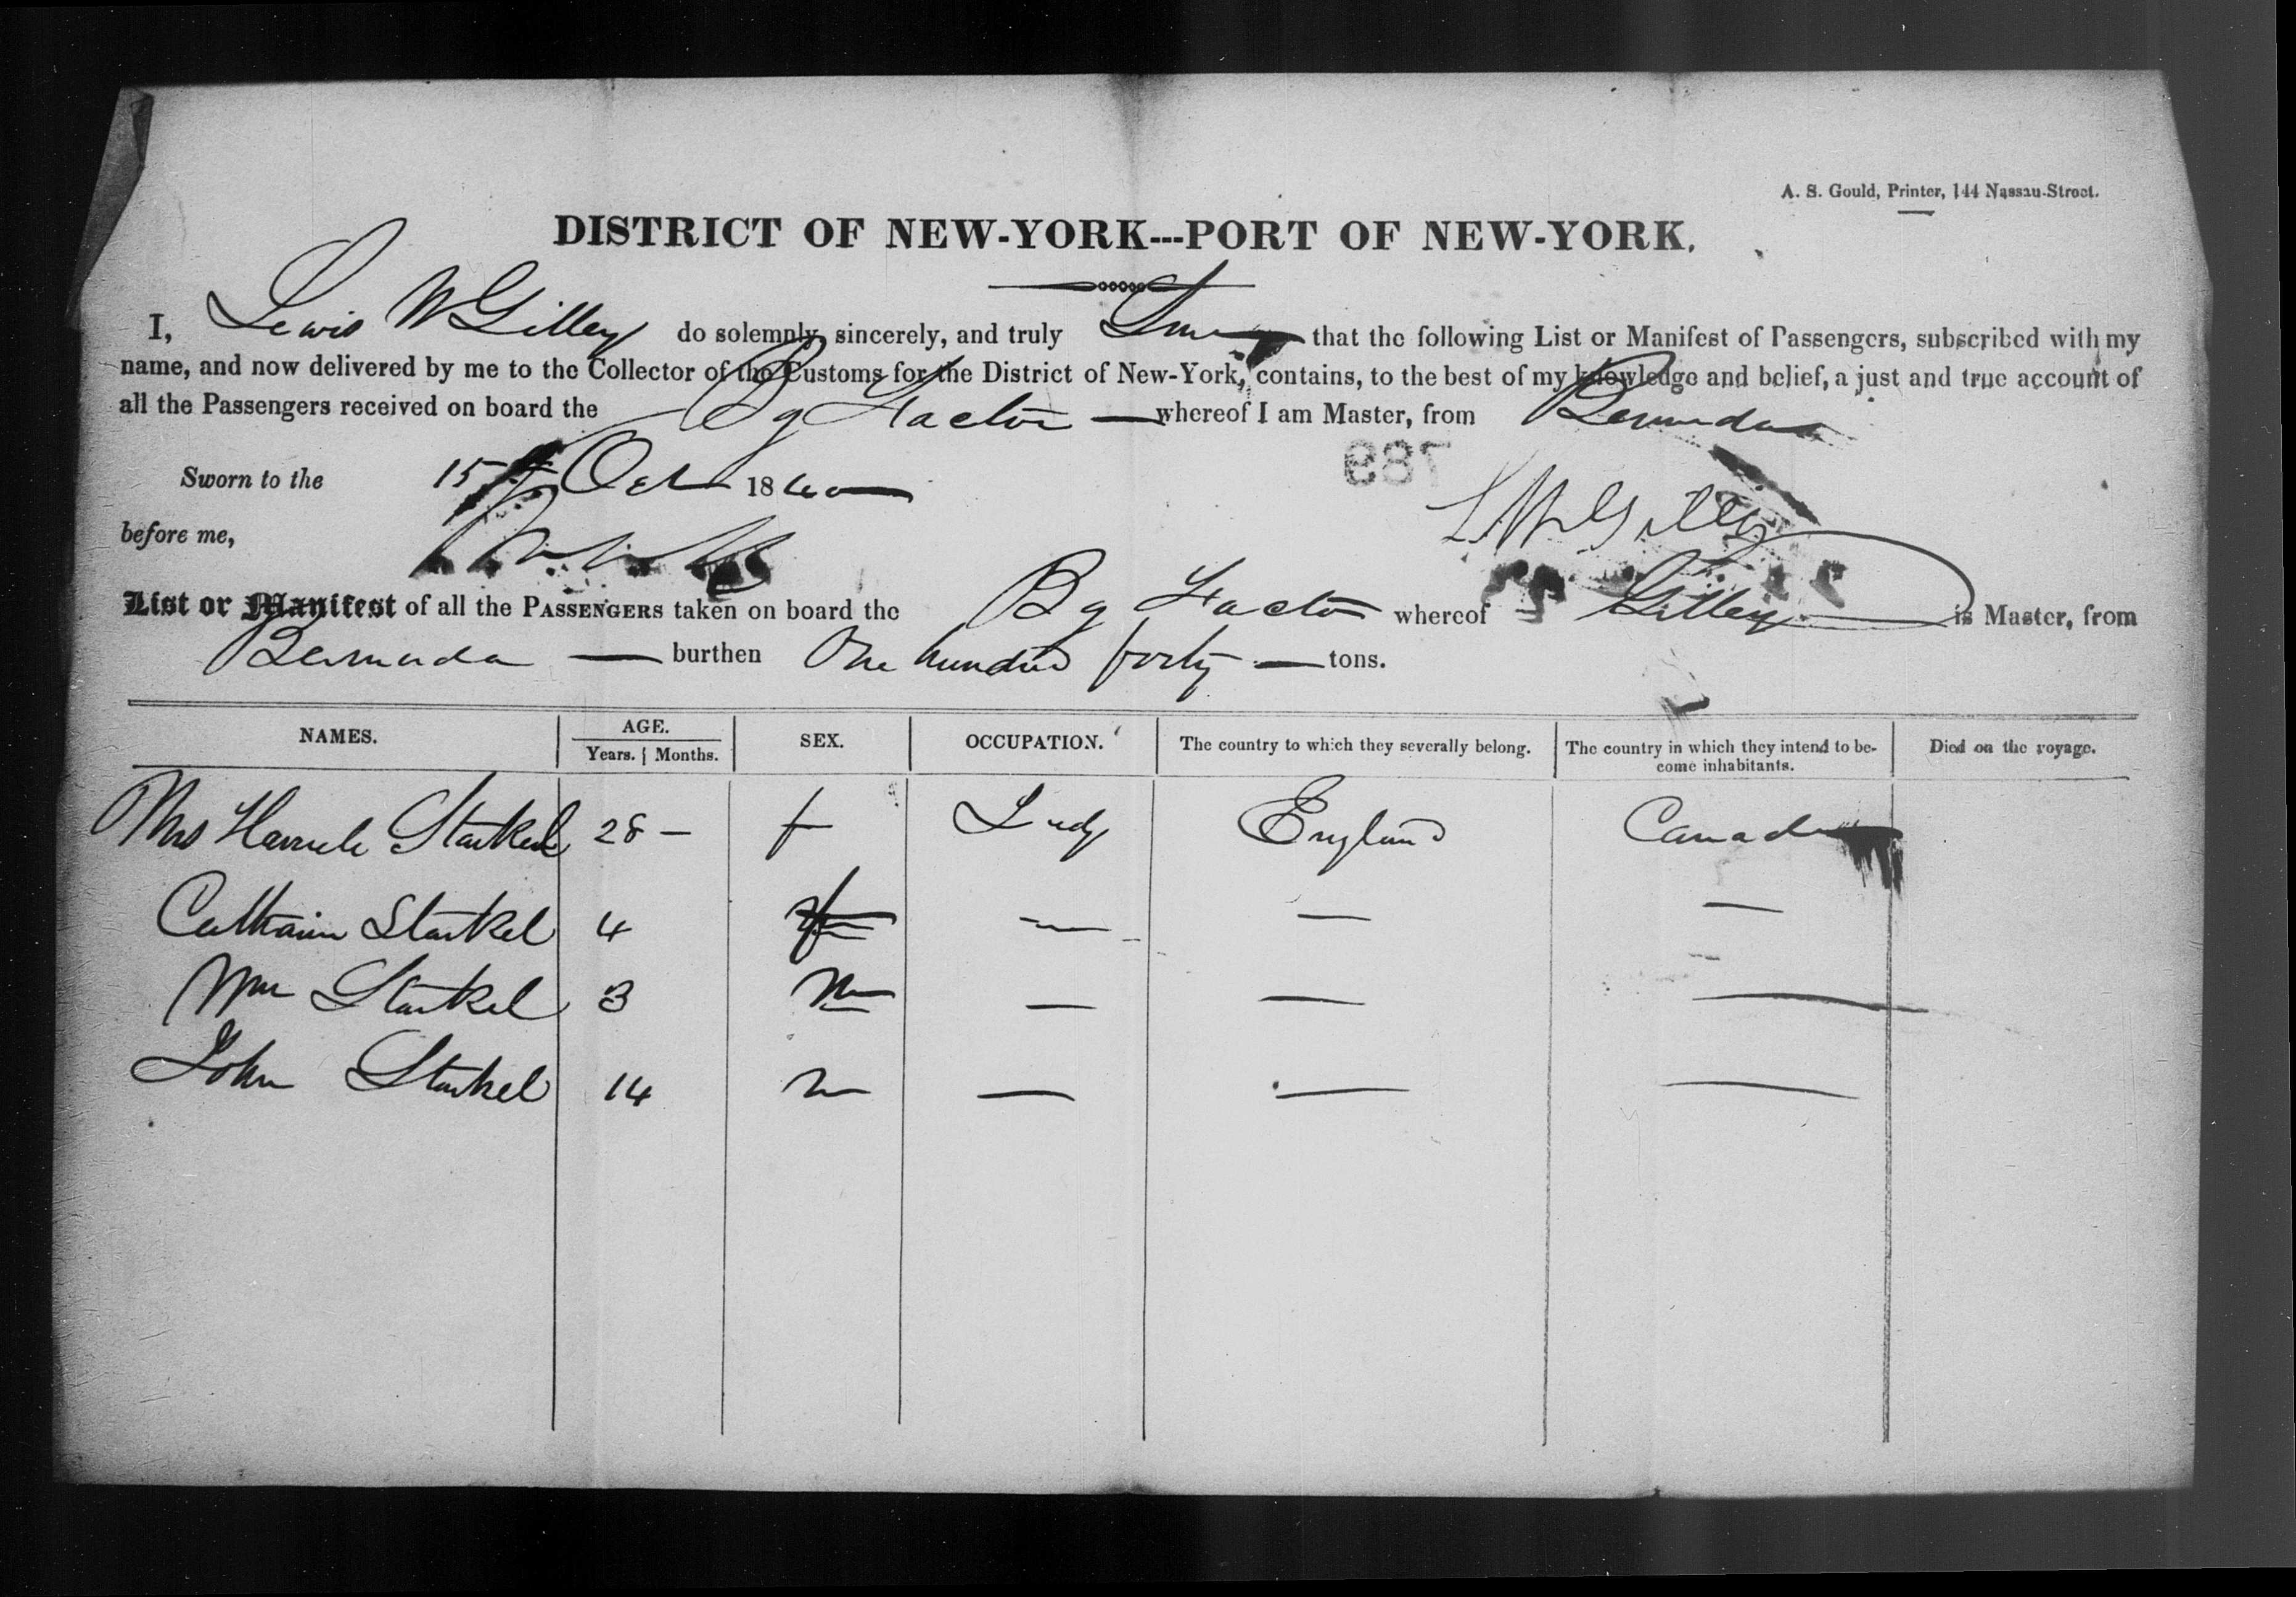 A. S. Gould, Printer, 144 Nassau-Street.
DISTRICT OF NEW-YORK---PORT OF NEW-YORK.
I, Lewis W Gilley do solemnly, sincerely, and truly Swear that the following List or Manifest of Passengers, subscribed with my
name, and now delivered by me to the Collector of the Customs for the District of New-York, contains, to the best of my knowledge and belief, a just and true account of
all the Passengers received on board the Bg Factor whereof I am Master, from Bermuda
789
Sworn to the 15 Oct 1840
L W Gilley
before me,
List or Manifest of all the PASSENGERS taken on board the Bg Factor whereof Gilley is Master, from
Bermuda — burthen One hundred forty — tons.
NAMES. AGE. SEX. OCCUPATION. The country to which they severally belong. The country in which they intend to be- Died on the voyage.
Years. Months. come inhabitants.
Mrs Starkel 28 — f Lady England Canada
Catharin Starkel 4 f — — —
Wm Starkel 3 m — — —
John Starkel 14 m — — —